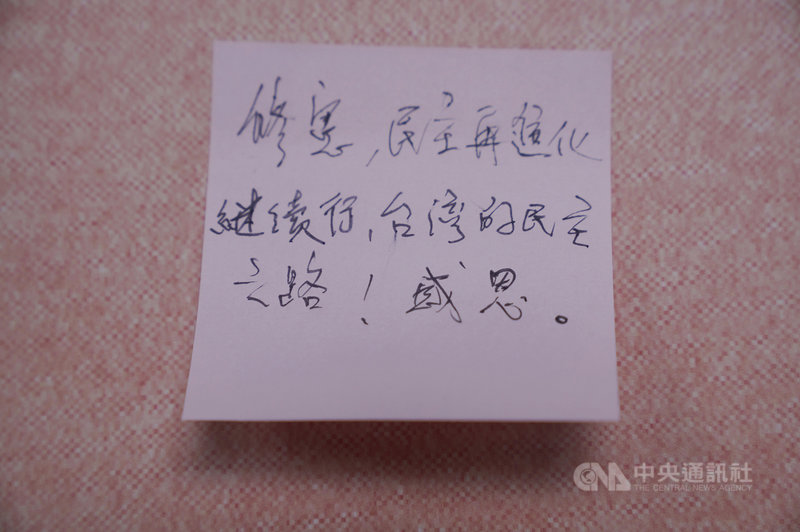 修憲,民主再進化
継续行,台湾的民主
之路!感恩。
CNA 中央通訊社
THE CENTRAL NEWS AGENCY